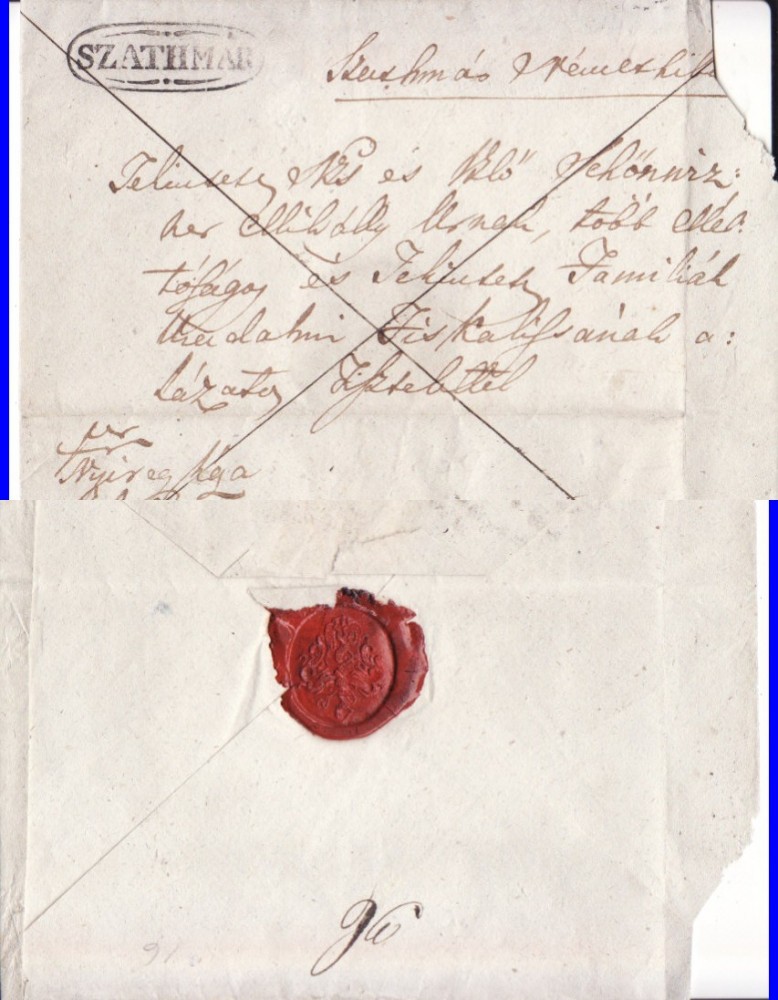 SZATHMÁR
Szathmár Némethi
Tekintetes Nks és Vtlő Schönviz:
ner Mihály Urnak, több Mél:
tóságos és Tekintetes Familiák
Uradalmi Fiskalissának a:
lázatos tisztelettel
per
Nyiregyháza